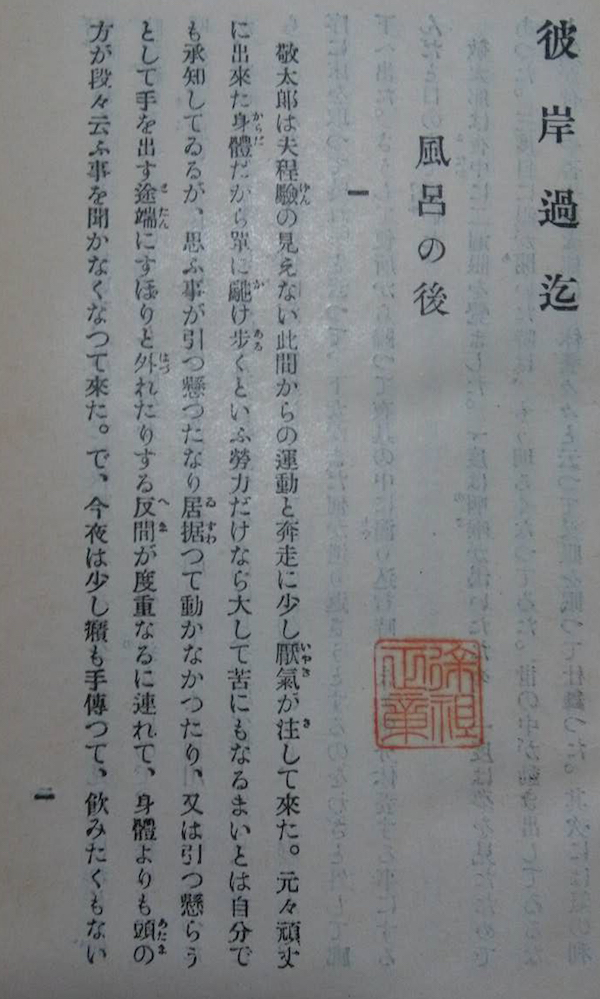 彼岸過迄
風呂の後
一
敬太郎は夫程驗の見えない此間からの運動と奔走に少し厭氣が注して來た。元々頑丈
に出來た身體だから單に馳け歩くといふ勞力だけなら大して苦にもなるまいとは自分で
も承知してゐるが、思ふ事が引つ懸つたなり居据つて動かなかつたり、又は引つ懸らう
として手を出す途端にすぽりと外れたりする反間が度重なるに連れて、身體よりも頭の
方が段々云ふ事を聞かなくなつて來た。で、今夜は少し癪も手傳つて、飮みたくもない
一
徐祖正章